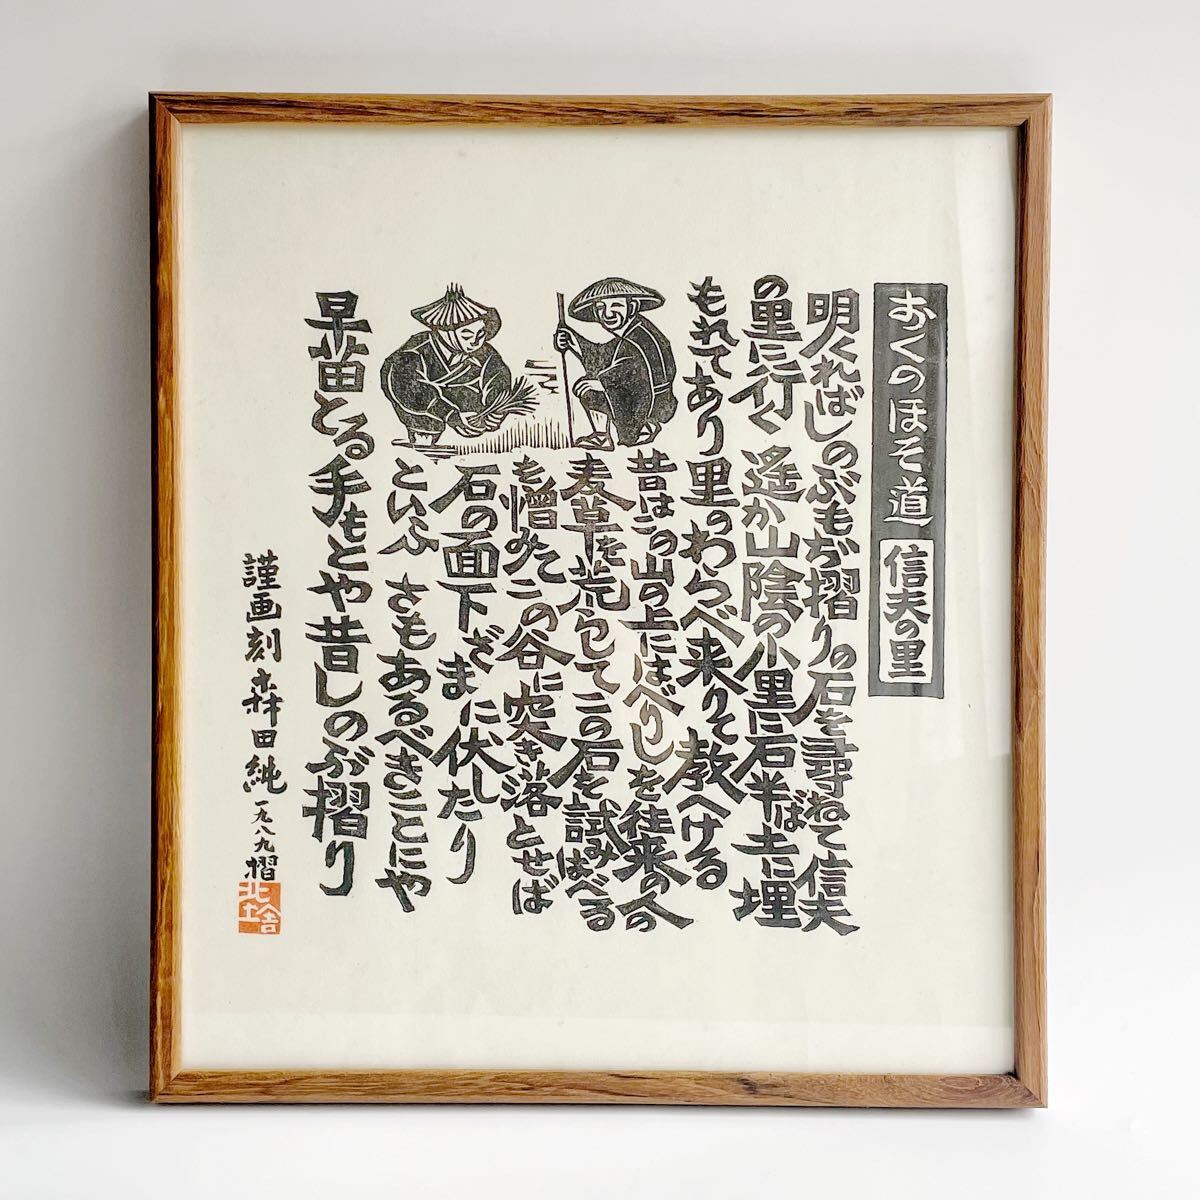 おくのほそ道 信夫の里
明くればしのぶもぢ摺りの石を尋ねて信夫
の里に行く 遥か山陰の小里に石半ば土に埋
もれてあり里のわらべ来りて教へける
昔はこの山の上にはべりしを往来の人の
麦草を荒らしてこの石を試みはべる
を憎みてこの谷に突き落とせば
石の面下ざまに伏したり
といふ さもあるべきことにや
早苗とる手もとや昔しのぶ摺り
謹画刻 森田純 一九八九摺